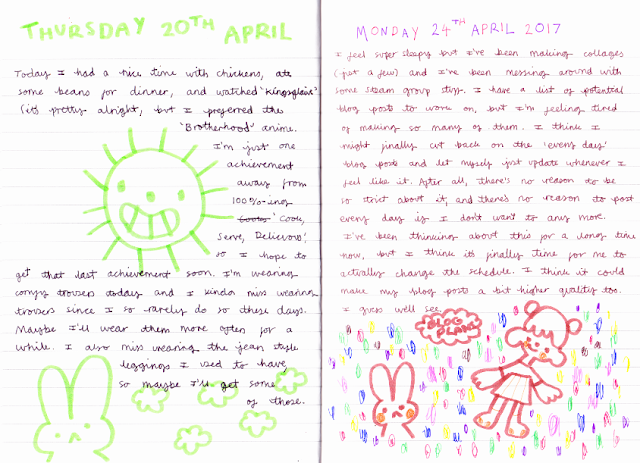 THURSDAY 20TH APRIL
Today I had a nice time with chickens, ate
some beans for dinner, and watched 'Kingsglaive'
(it's pretty alright, but I preferred the
'Brotherhood' anime.
I'm just one
achievement
away from
100%-ing
'Cook,
Serve, Delicious'
so I hope to
get that last achievement soon. I'm wearing
comfy trousers today and I kinda miss wearing
trousers since I so rarely do so these days.
Maybe I'll wear them more often for a
while. I also miss wearing the jean style
leggings I used to have,
so maybe I'll get some
of those.
MONDAY 24TH APRIL 2017
I feel super sleepy but I've been making collages
(just a few) and I've been messing around with
some steam group stuff. I have a list of potential
blog posts to work on, but I'm feeling tired
of making so many of them. I think I
might finally cut back on the 'every day'
blog posts and let myself just update whenever I
feel like it. After all, there's no reason to be
so strict about it, and there's no reason to post
every day if I don't want to any more.
I've been thinking about this for a long time
now, but I think it's finally time for me to
actually change the schedule. I think it could
make my blog posts a bit higher quality too.
I guess we'll see.
BLOG
PLANS